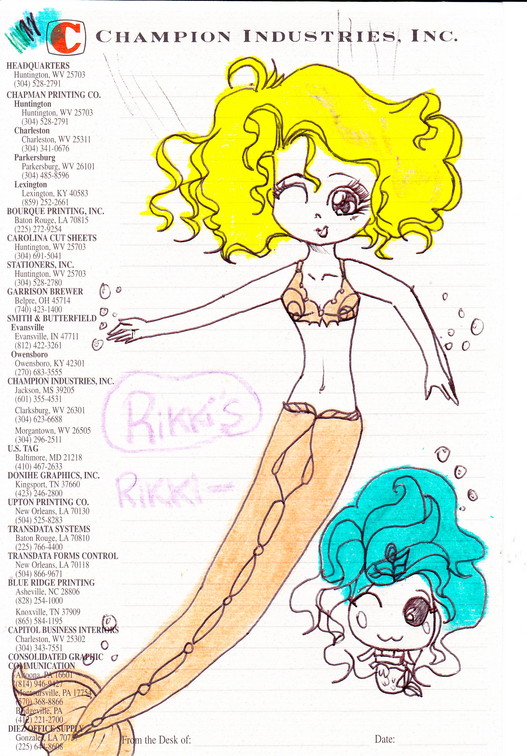 C CHAMPION INDUSTRIES, INC.
HEADQUARTERS
Huntington, WV 25703
(304) 528-2791
CHAPMAN PRINTING CO.
Huntington
Huntington, WV 25703
(304) 528-2791
Charleston
Charleston, WV 25311
(304) 341-0676
Parkersburg
Parkersburg, WV 26101
(304) 485-8596
Lexington
Lexington, KY 40583
(859) 252-2661
BOURQUE PRINTING, INC.
Baton Rouge, LA 70815
(225) 272-9254
CAROLINA CUT SHEETS
Huntington, WV 25703
(304) 691-5041
STATIONERS, INC.
Huntington, WV 25703
(304) 528-2780
GARRISON BREWER
Belpre, OH 45714
(740) 423-1400
SMITH & BUTTERFIELD
Evansville
Evansville, IN 47711
(812) 422-3261
Owensboro
Owensboro, KY 42301
(270) 683-3555
CHAMPION INDUSTRIES, INC.
Jackson, MS 39205
(601) 355-4531
Clarksburg, WV 26301
(304) 623-6688
Morgantown, WV 26505
(304) 296-2511
U.S. TAG
Baltimore, MD 21218
(410) 467-2633
DONIHE GRAPHICS, INC.
Kingsport, TN 37660
(423) 246-2800
UPTON PRINTING CO.
New Orleans, LA 70130
(504) 525-8283
TRANSDATA SYSTEMS
Baton Rouge, LA 70810
(225) 766-4400
TRANSDATA FORMS CONTROL
New Orleans, LA 70118
(504) 866-9671
BLUE RIDGE PRINTING
Asheville, NC 28806
(828) 254-1000
Knoxville, TN 37909
(865) 584-1195
CAPITOL BUSINESS INTERIORS
Charleston, WV 25302
(304) 343-7551
CONSOLIDATED GRAPHIC
COMMUNICATION
Altoona, PA 16601
(814)
Montoursville, PA 17754
(570) 368-8866
Bridgeville, PA
(412) 221-2700
DIEZ OFFICE SUPPLY
Gonzales, LA
(225)
Rikki's
RIKKI=
From the Desk of: Date: